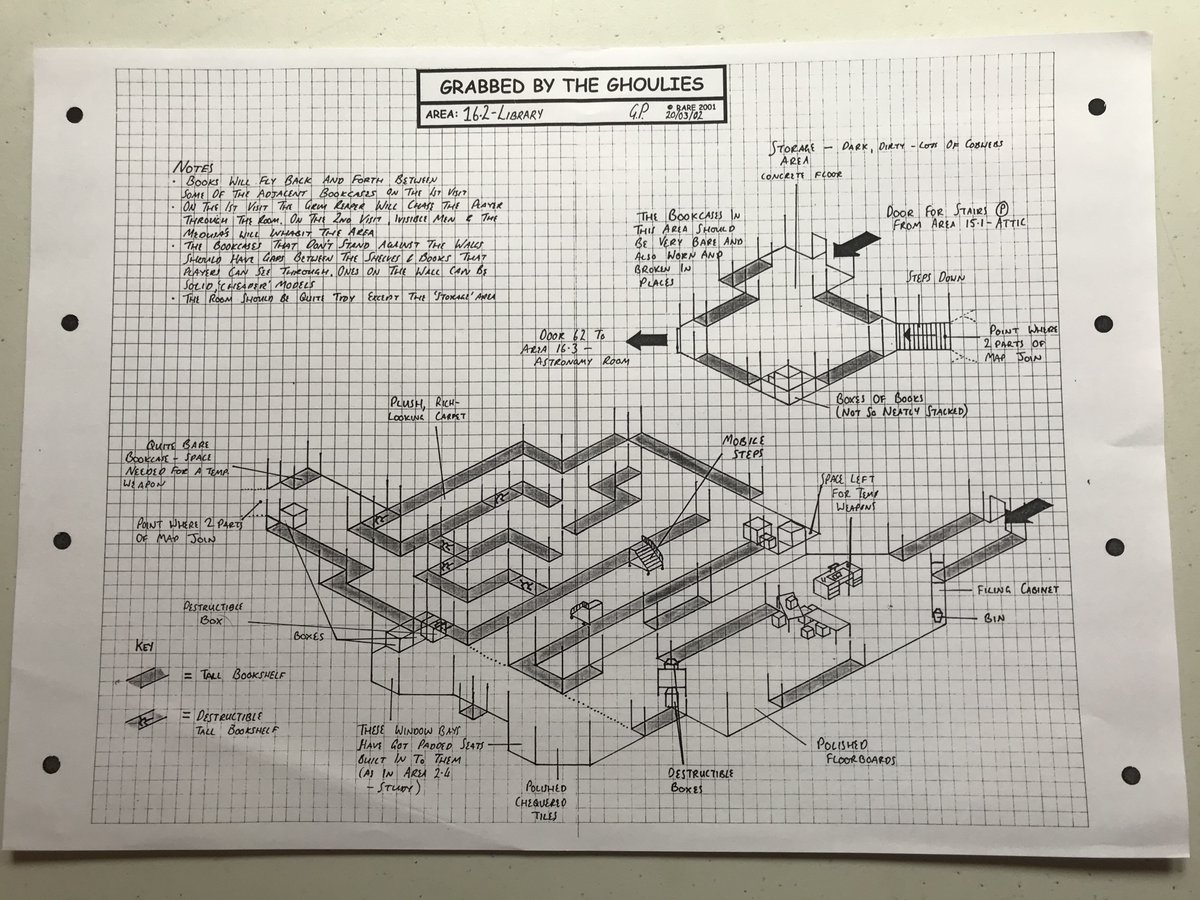 GRABBED BY THE GHOULIES
AREA: 16.2-LIBRARY G.P. © RARE 2001
20/03/02
NOTES
• BOOKS WILL FLY BACK AND FORTH BETWEEN
SOME OF THE ADJACENT BOOKCASES ON THE 1ST VISIT
• ON THE 1ST VISIT THE GRIM REAPER WILL CHASE THE PLAYER
THROUGH THE ROOM. ON THE 2ND VISIT, IVISIBLE MEN & THE
MEDUSA'S WILL INHABIT THE AREA
• THE BOOKCASES THAT DON'T STAND AGAINST THE WALLS
SHOULD HAVE GAPS BETWEEN THE SHELVES & BOOKS THAT
PLAYERS CAN SEE THROUGH. ONES ON THE WALL CAN BE
SOLID, 'CHEAPER' MODELS
• THE ROOM SHOULD BE QUITE TIDY EXCEPT THE 'STORAGE' AREA
STORAGE – DARK, DIRTY - LOTS OF COBWEBS
AREA
CONCRETE FLOOR
THE BOOKCASES IN
THIS AREA SHOULD
BE VERY BARE AND
ALSO WORN AND
BROKEN IN
PLACES
DOOR FOR STAIRS P
FROM AREA 15.1-ATTIC
STEPS DOWN
DOOR 62 TO
AREA 16.3 –
ASTRONOMY ROOM
POINT WHERE
2 PARTS OF
MAP JOIN
BOXES OF BOOKS
(NOT SO NEATLY STACKED)
PLUSH, RICH-
LOOKING CARPET
QUITE BARE
BOOKCASE - SPACE
NEEDED FOR A TEMP.
WEAPON
MOBILE
STEPS
SPACE LEFT
FOR TEMP
WEAPONS
POINT WHERE 2 PARTS
OF MAP JOIN
FILING CABINET
BIN
DESTRUCTIBLE
BOX
BOXES
KEY
= TALL BOOKSHELF
= DESTRUCTIBLE
TALL BOOKSHELF
THESE WINDOW BAYS
HAVE GOT PADDED SEATS
BUILT IN TO THEM
(AS IN AREA 2.4
- STUDY)
POLISHED
CHEQUERED
TILES
DESTRUCTIBLE
BOXES
POLISHED
FLOORBOARDS